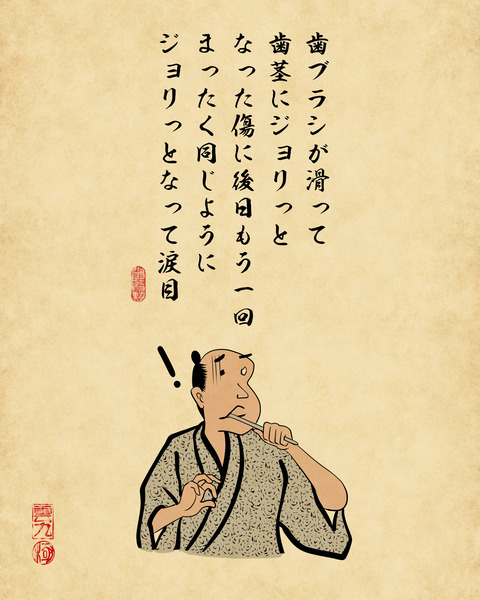 歯ブラシが滑って
歯茎にジョリっと
なった傷に後日もう一回
まったく同じように
ジョリっとなって涙目
!